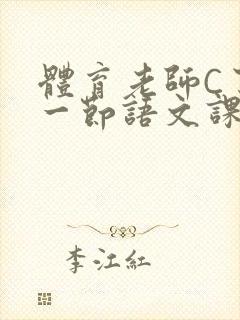 體育老師C
一節語文課
李江紅